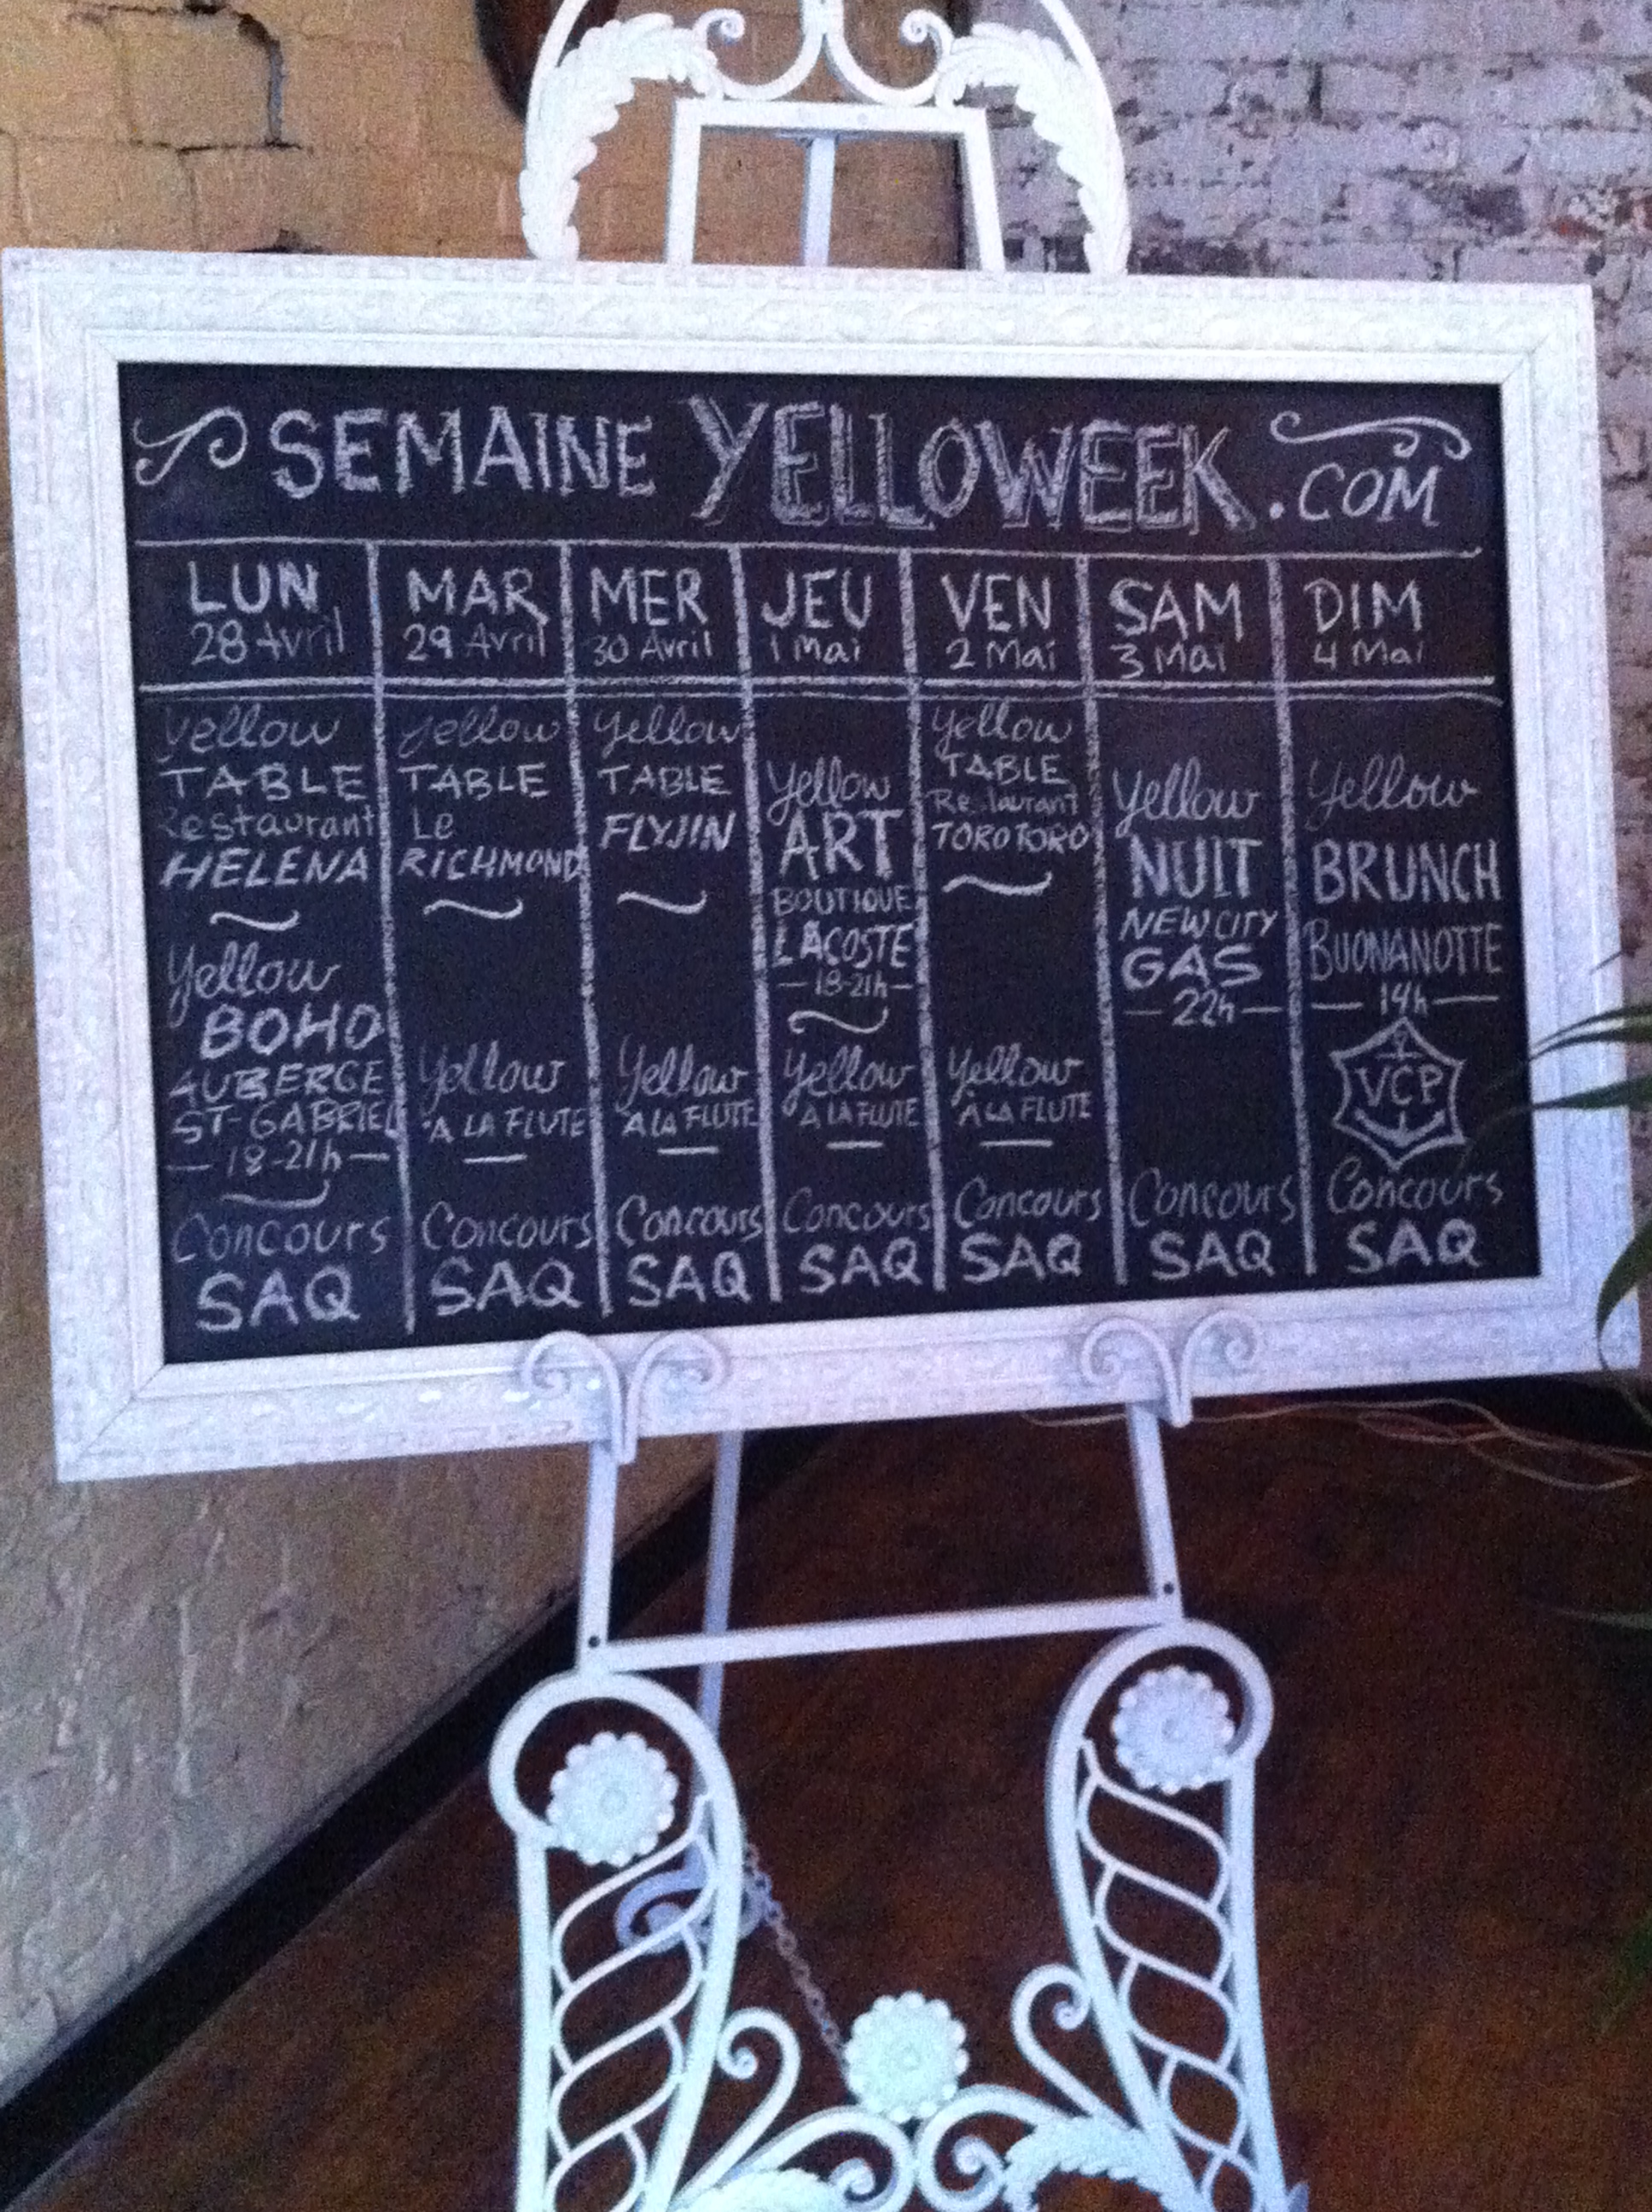 SEMAINE YELLOWEEK.COM
LUN
28 Avril
Yellow
TABLE
Restaurant
HELENA
Yellow
BOHO
AUBERGE
ST-GABRIEL
18-21h
Concours
SAQ
MAR
29 Avril
Yellow
TABLE
Le
RICHMOND
Yellow
À LA FLUTE
Concours
SAQ
MER
30 Avril
Yellow
TABLE
FLYJIN
Yellow
À LA FLUTE
Concours
SAQ
JEU
1 Mai
Yellow
ART
BOUTIQUE
LACOSTE
18-21h
Yellow
À LA FLUTE
Concours
SAQ
VEN
2 Mai
Yellow
TABLE
Restaurant
TORO TORO
Yellow
À LA FLUTE
Concours
SAQ
SAM
3 Mai
Yellow
NUIT
NEW CITY
GAS
22h
Concours
SAQ
DIM
4 Mai
Yellow
BRUNCH
BUONANOTTE
14h
VCP
Concours
SAQ